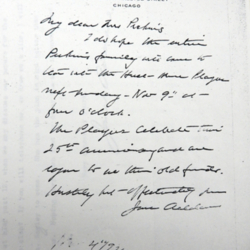 CHICAGO
My dear Mrs Perkins
I do hope the entire
Perkins family will come to
tea with the Hull-House Players
next Sunday - Nov 9" at
four o'clock.
The Players celebrate their
25th anniversary and are
eager to see their old friends.
affectionately
Jane Addams